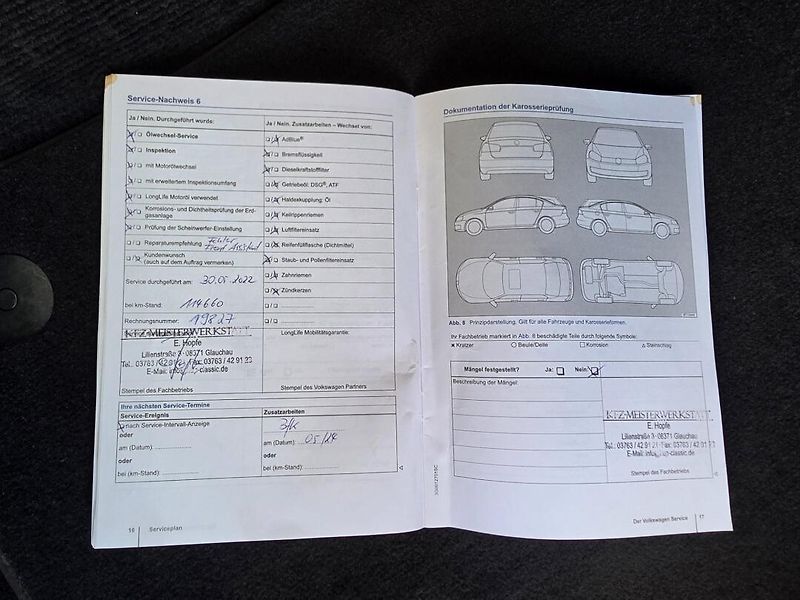 Service-Nachweis 6
Ja / Nein. Durchgeführt wurde:
Ölwechsel-Service
Inspektion
mit Motorölwechsel
mit erweitertem Inspektionsumfang
LongLife Motoröl verwendet
Korrosions- und Dichtheitsprüfung der Erd-
gasanlage
Prüfung der Scheinwerfer-Einstellung
Reparaturempfehlung Fehler
Front Assistant
Kundenwunsch
(auch auf dem Auftrag vermerken)
Service durchgeführt am: 30.05.2022
bei km-Stand: 114660
Rechnungsnummer: 19827
KFZ-MEISTERWERKSTATT
E. Hopfe
Lilienstraße 3 · 08371 Glauchau
Tel.: 03763 / 42 91 Fax: 03763 / 42 91 23
E-Mail: -classic.de
Stempel des Fachbetriebs
Ja / Nein. Zusatzarbeiten – Wechsel von:
AdBlue®
Bremsflüssigkeit
Dieselkraftstofffilter
Getriebeöl: DSG®, ATF
Haldexkupplung: Öl
Keilrippenriemen
Luftfiltereinsatz
Reifenfüllflasche (Dichtmittel)
Staub- und Pollenfiltereinsatz
Zahnriemen
Zündkerzen
LongLife Mobilitätsgarantie:
Stempel des Volkswagen Partners
Ihre nächsten Service-Termine
Service-Ereignis
nach Service-Intervall-Anzeige
oder
am (Datum):
oder
bei (km-Stand):
Zusatzarbeiten
am (Datum): 05/24
oder
bei (km-Stand):
16 Serviceplan
Dokumentation der Karosserieprüfung
Abb. 8 Prinzipdarstellung. Gilt für alle Fahrzeuge und Karosserieformen.
Ihr Fachbetrieb markiert in Abb. 8 beschädigte Teile durch folgende Symbole:
× Kratzer ○ Beule/Delle □ Korrosion △ Steinschlag
Mängel festgestellt? Ja: Nein:
Beschreibung der Mängel
KFZ-MEISTERWERKSTATT
E. Hopfe
Lilienstraße 3 · 08371 Glauchau
Tel.: 03763 / 42 91 Fax: 03763 / 42 91 23
E-Mail: -classic.de
Stempel des Fachbetriebs
Der Volkswagen Service 17